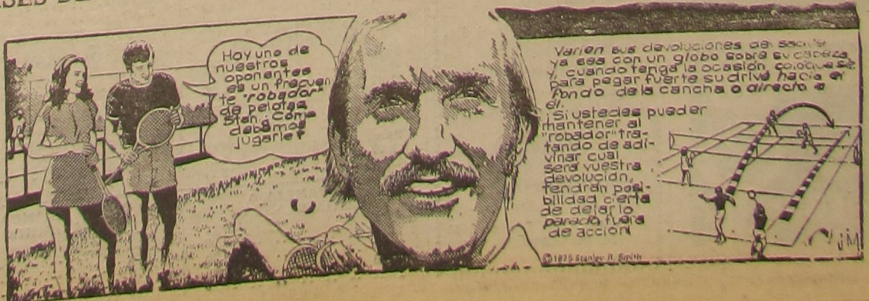 Hoy uno de
nuestros
oponentes
es un frecuen
te "robador"
de pelotas
Stan. Como
debemos
jugarle?
Varíen sus devoluciones del saque
ya sea con un globo sobre su cabeza
y cuando tenga la ocasión coloquese
para pegar fuerte su drive hacia el
fondo de la cancha o directo a
el.
¡Si ustedes pueden
mantener al
"robador" tra-
tando de adi-
vinar cual
será vuestra
devolución,
tendrán posi-
bilidad cierta
de dejarlo
parado, fuera
de acción!
©1975 Stanley R. Smith